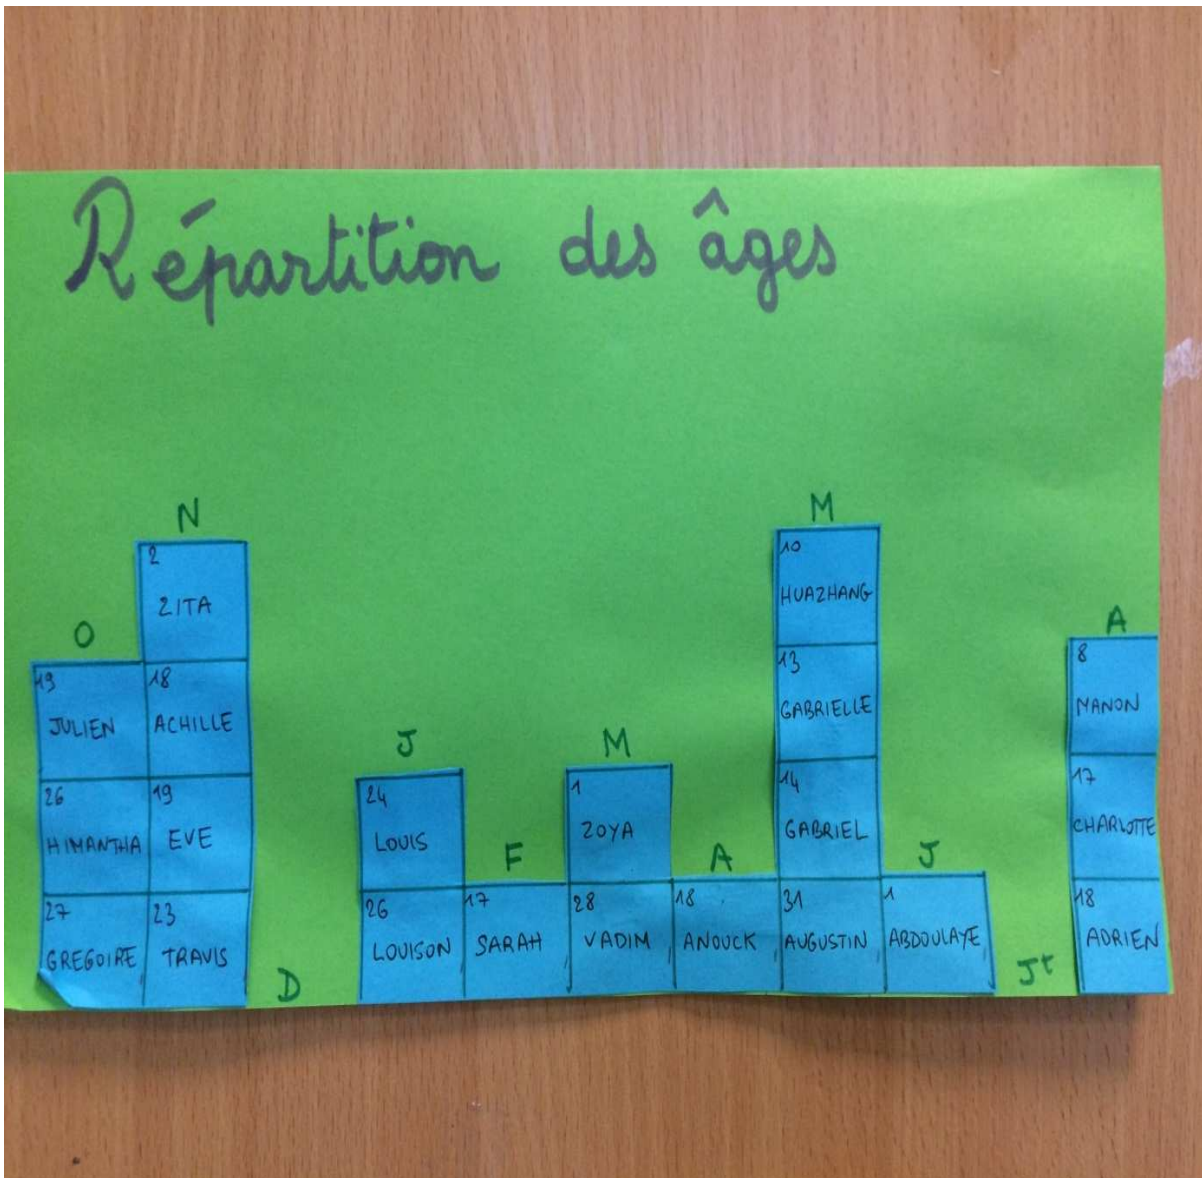 Répartition des âges
O
19
JULIEN
26
HIMANTHA
27
GREGOIRE
N
2
ZITA
18
ACHILLE
19
EVE
23
TRAVIS
D
J
24
LOUIS
26
LOUISON
F
17
SARAH
M
1
ZOYA
28
VADIM
A
18
ANOUCK
M
10
HUAZHANG
13
GABRIELLE
14
GABRIEL
31
AUGUSTIN
J
1
ABDOULAYE
Jt
A
8
MANON
17
CHARLOTTE
18
ADRIEN